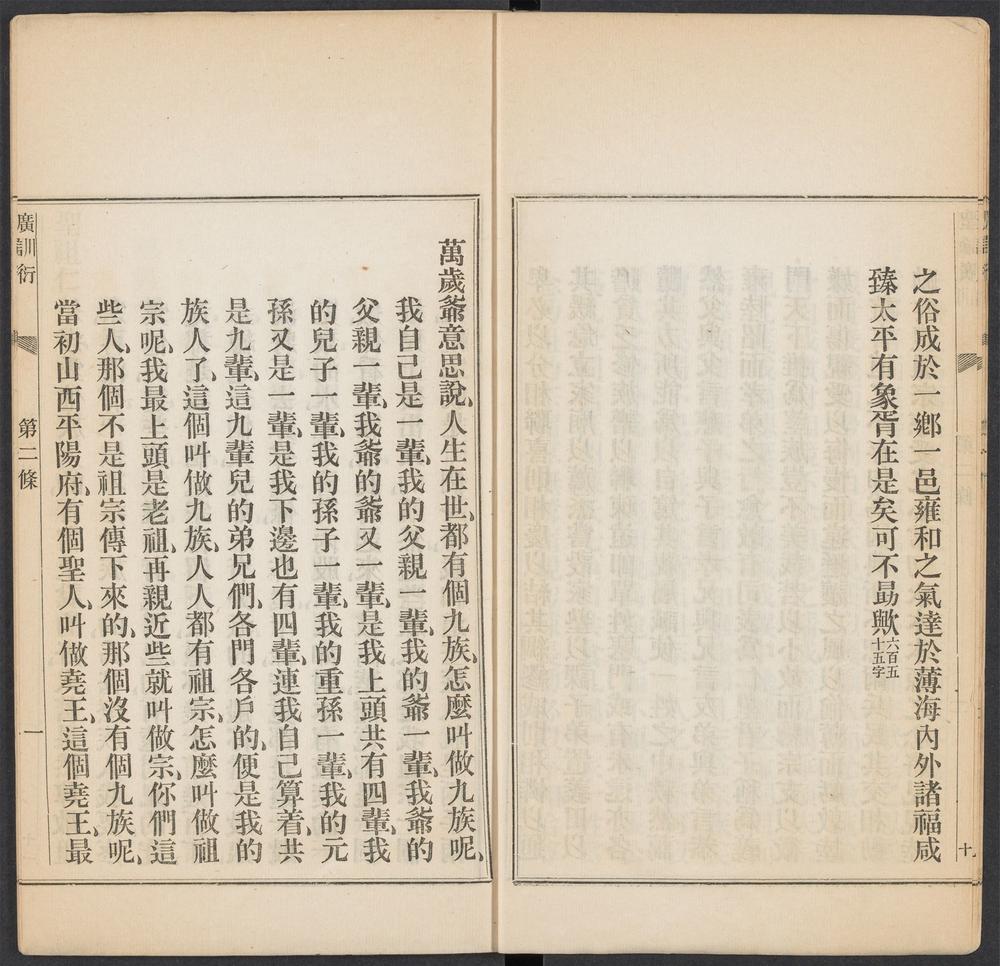 之俗成於一鄉一邑雍和之氣達於薄海內外諸福咸
臻太平有象胥在是矣可不勗歟六百五十五字
十
萬歲爺意思說、人生在世、都有個九族、怎麼叫做九族呢、
我自己是一輩、我的父親一輩、我的爺一輩、我爺的
父親一輩、我爺的爺又一輩、是我上頭共有四輩、我
的兒子一輩、我的孫子一輩、我的重孫一輩、我的元
孫又是一輩、是我下邊也有四輩、連我自己算着、共
是九輩、這九輩兒的弟兄們、各門各戶的、便是我的
族人了、這個叫做九族、人人都有祖宗、怎麼叫做祖
宗呢、我最上頭是老祖、再親近些就叫做宗、你們這
些人、那個不是祖宗傳下來的、那個沒有個九族呢、
當初山西平陽府、有個聖人、叫做堯王、這個堯王、最
廣訓衍
第二條
一